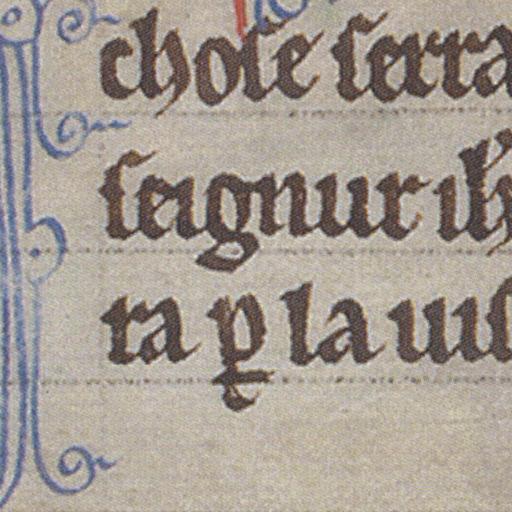 choſe ſerra
ſeignur ih
ra ꝑ la uiſ